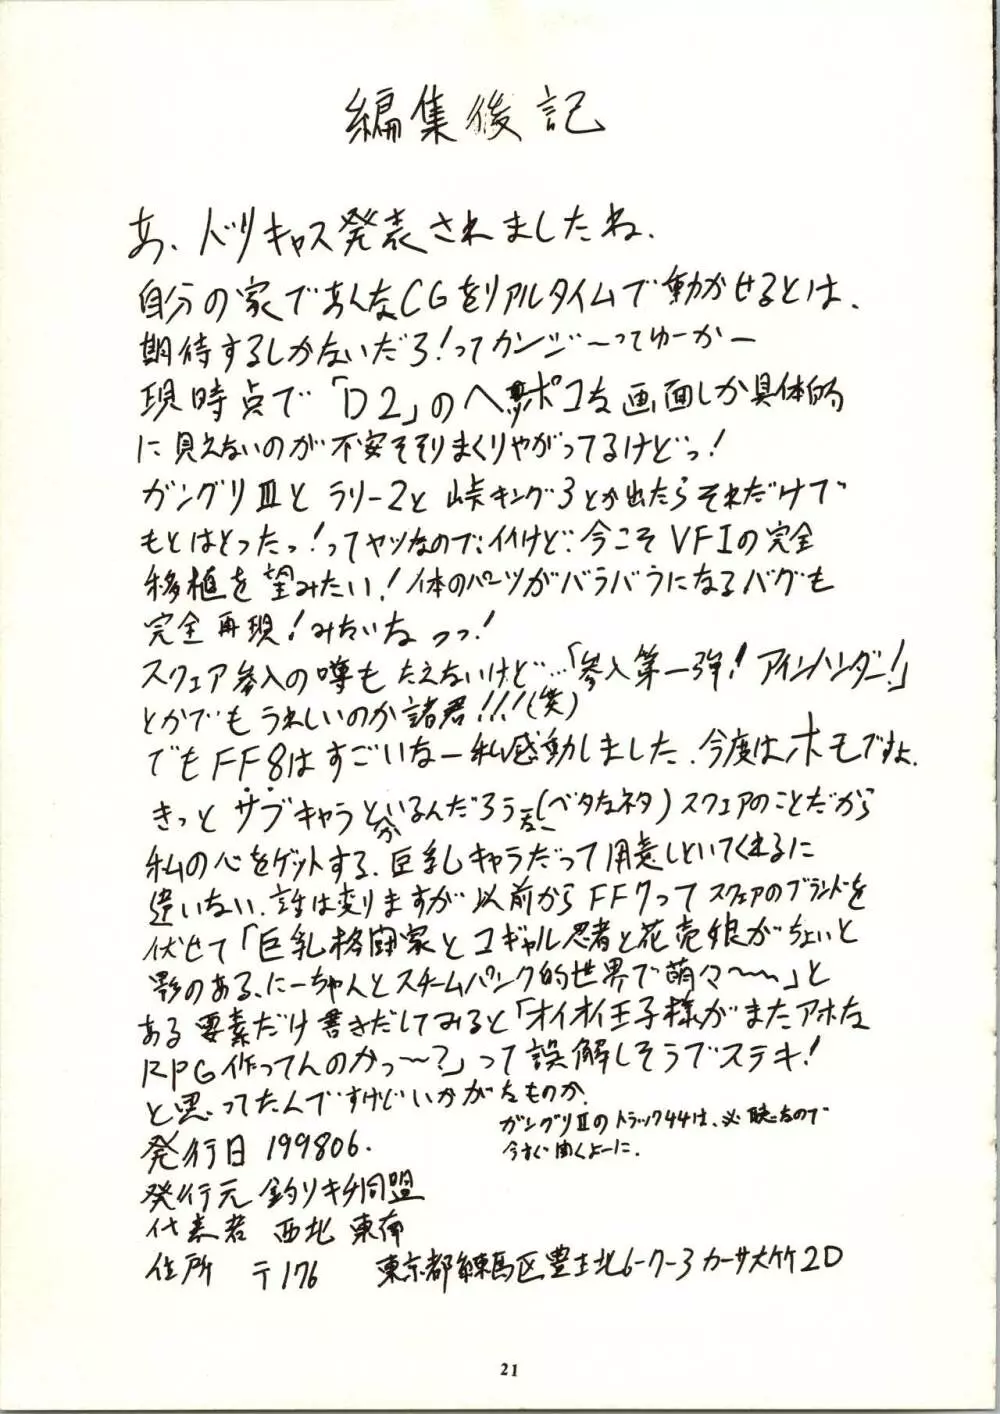 編集後記
あ、ドリキャス発表されましたね、
自分の家であんなCGをリアルタイムで動かせるとは、
期待するしかないだろ!ってカンジ〜ってゆーかー
現時点で「D2」のヘッポコな画面しか具体的
に見えないのが不安そそりまくりやがってるけどっ!
ガングリⅢとラリー2と峠キング3とか出たらそれだけで
もとはとったっ!ってヤツなので、イイけど、今こそVF1の完全
移植を望みたい!体のパーツがバラバラになるバグも
完全再現!みたいなっっ!
スクェア参入の噂もたえないけど…「参入第一弾!アインハンダー!」
とかでもうれしいのか諸君!!!(笑)
でもFF8はすごいなー私感動しました、今度はホモですよ、
きっとサブキャラといるんだろう(ベタなネタ)スクェアのことだから
私の心をゲットする、巨乳キャラだって用意しといてくれるに
違いない、話は変りますが以前からFF7ってスクェアのブランドを
伏せて「巨乳格闘家とコギャル忍者と花売娘がちょいと
影のある、にーちゃんとスチームパンク的世界で萌々〜〜」と
ある要素だけ書きだしてみると「オイオイ王子様がまたアホな
RPG作ってんのかっ〜?」って誤解しそうでステキ!
と思ってたんですけどいかがなものか、
ガングリⅡのトラック44は、必聴なので
今すぐ聞くよーに、
発行日 199806.
発行元 釣りキチ同盟
代表者 西北 東南
住所 〒176 東京都練馬区豊玉北6-7-3 カーサ大竹2D
21